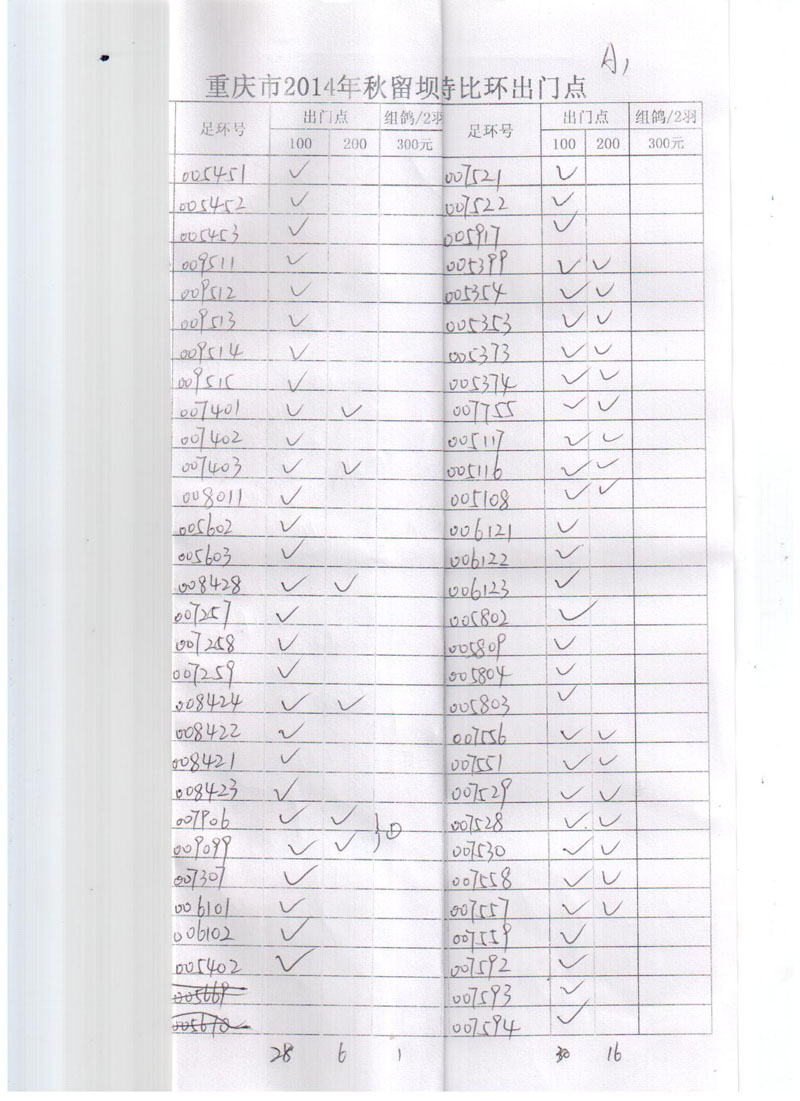 A1
重庆市2014年秋留坝特比环出门点
足环号 出门点 组鸽/2羽 足环号 出门点 组鸽/2羽
100 200 300元 100 200 300元
005451 ✓ 007521 ✓
005452 ✓ 007522 ✓
005453 ✓ 005917 ✓
009511 ✓ 005399 ✓ ✓
009512 ✓ 005354 ✓ ✓
009513 ✓ 005353 ✓ ✓
009514 ✓ 005373 ✓ ✓
009515 ✓ 005374 ✓ ✓
007401 ✓ ✓ 007755 ✓ ✓
007402 ✓ 005117 ✓ ✓
007403 ✓ ✓ 005116 ✓ ✓
008011 ✓ 005108 ✓ ✓
005602 ✓ 006121 ✓
005603 ✓ 006122 ✓
008428 ✓ ✓ 006123 ✓
007257 ✓ 005802 ✓
007258 ✓ 005809 ✓
007259 ✓ 005804 ✓
008424 ✓ ✓ 005803 ✓
008422 ✓ 007556 ✓ ✓
008421 ✓ 007551 ✓ ✓
008423 ✓ 007529 ✓ ✓
007906 ✓ ✓ } ① 007528 ✓ ✓
009099 ✓ ✓ 007530 ✓ ✓
007307 ✓ 007558 ✓ ✓
006101 ✓ 007557 ✓ ✓
006102 ✓ 007559 ✓
005402 ✓ 007592 ✓
005669 007593 ✓
005670 007594 ✓
28 6 1 30 16